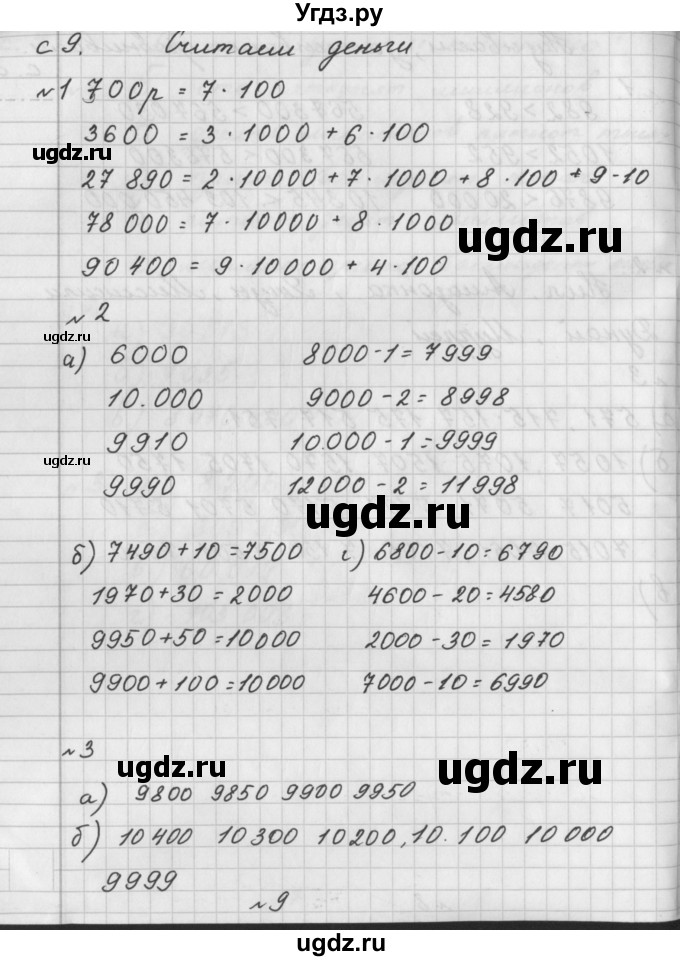 Угдз.ру
с 9. Считаем деньги
№1 700р = 7·100
3600 = 3·1000 + 6·100
ugdz.ru
27 890 = 2·10000 + 7·1000 + 8·100 + 9-10
78 000 = 7·10000 + 8·1000
ugdz.ru
90 400 = 9·10000 + 4·100
№2
ugdz.ru
а) 6000 8000-1=7999
10.000 9000-2=8998
9910 10.000-1=9999
ugdz.ru
9990 12000-2=11998
ugdz.ru
б) 7490+10=7500 г) 6800-10=6790
1970+30=2000 4600-20=4580
9950+50=10000 2000-30=1970
9900+100=10000 7000-10=6990
№3
ugdz.ru ugdz.ru
а) 9800 9850 9900 9950
б) 10400 10300 10200, 10.100 10000
9999
№9
ugdz.ru
ugdz.ru